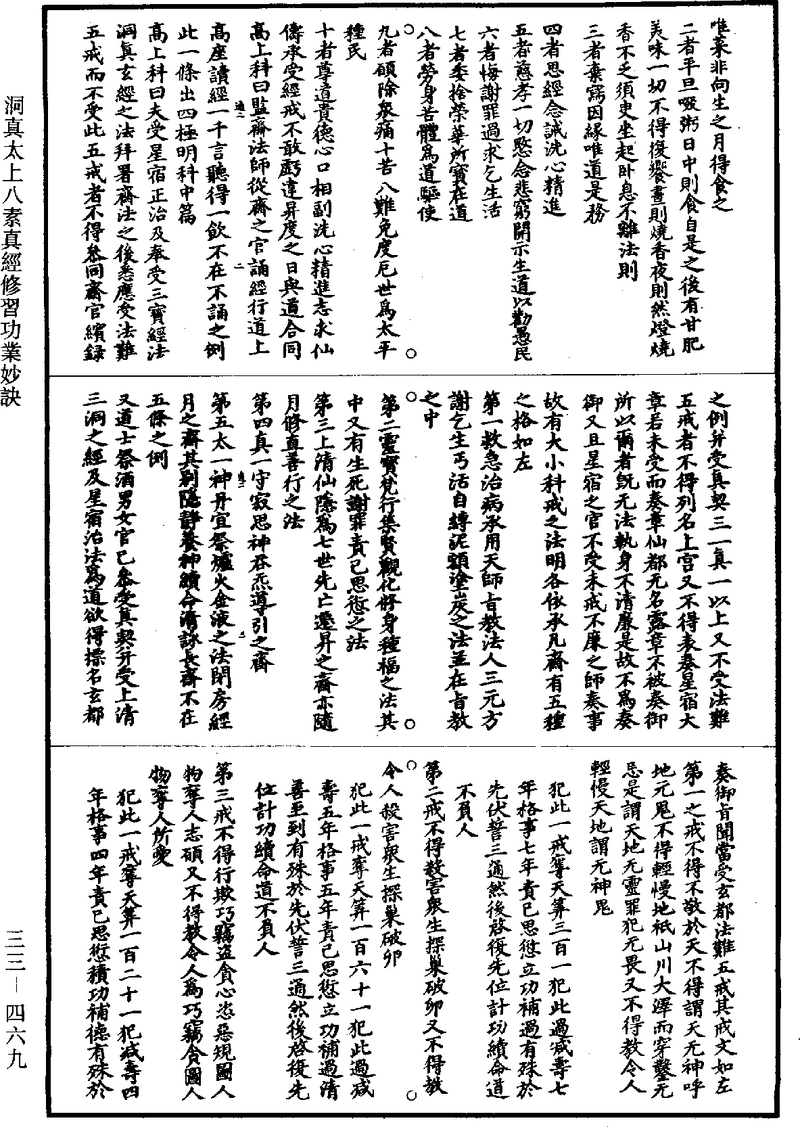 唯菜非向生之月得食之
二者平旦吸粥日中則食自是之後有甘肥
美味一切不得復饗晝則燒香夜則然燈燒
香不乏須臾坐起卧息不離法則
三者棄寫因緣唯道是務
四者思經念誡洗心精進
五者慈孝一切愍念悲窮開示生道以勸愚民
六者悔謝罪過求乞生活
七者委捨榮華所寶在道
八者勞身苦體為道驅使
九者願除衆痛十苦八難免度厄世為太平
種民
十者尊道貴德心口相副洗心精進志求仙
儔承受經戒不敢虧違昇度之日與道合同
高上科曰監齋法師從齋之官誦經行道上
高座讀經一千言聽得一飲不在不誦之例
此一條出四極明科中篇
高上科曰夫受星宿正治及奉受三寶經法
洞真玄經之法拜署齋法之後悉應受法難
五戒而不受此五戒者不得叅同齋官纘録
之例并受真契三一真一以上又不受法難
五戒者不得列名上宫又不得表奏星宿大
章若未受而奏章仙都无名露章不被奏御
所以爾者旣无法執身不清嚴是故不為奏
御又且星宿之官不受未戒不廉之師奏事
故有大小科戒之法明各依承凡齋有五種
之格如左
第一救急治病承用天師旨教法人三元方
謝乞生丐活自縳泥額塗炭之法並在旨教
之中
第二靈寶梵行集賢觀化修身種福之法其
中又有生死謝罪責己思愆之法
第三上清仙隱為七世先亡遷昇之齋亦隨
月修直善行之法
第四真一守寂思神吞炁導引之齋
第五太一神丹宜祭爐火金液之法閉房經
月之齋其別隱靜養神續命清詠長齋不在
五條之例
又道士祭酒男女官已叅受真契并受上清
三洞之經及星宿治法為道欲得摽名玄都
奏御旨聞當受玄都法難五戒其戒文如左
第一之戒不得不敬於天不得謂天无神呼
地元鬼不得輕慢地祇山川大澤而穿鑿无
忌是謂天地无靈罪犯无畏又不得教令人
輕慢天地謂无神鬼
犯此一戒奪天筭三百一犯此過減壽七
年格事七年責己思愆立功補過有殊於
先伏誓三通然後啓復先位計功續命道
不負人
第二戒不得殺害衆生探巢破卵又不得教
令人殺害衆生探巢破卵
犯此一戒奪天筭一百六十一犯此過減
壽五年格事五年責己思愆立功補過清
善至到有殊於先伏誓三通然後啓復先
位計功續命道不負人
第三戒不得行欺巧竊盜貪心恣惡規圖人
物奪人志碩又不得教令人為巧竊貪圖人
物奪人所愛
犯此一戒奪天筭一百二十一犯減壽四
年格事四年責己思愆積功補德有殊於
洞真太上八素真經修習功業妙訣
三三—四六九